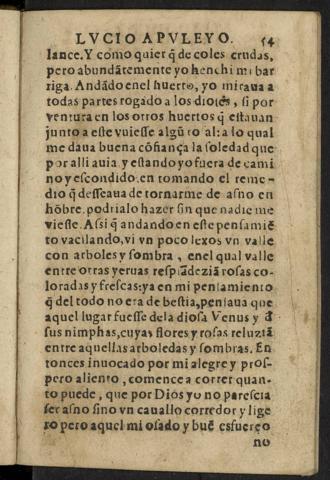 LVCIO APVLEYO. 54
lance. Y como quier q̃ de coles crudas,
pero abundãtemente yo henchi mi bar
riga. Andãdo enel huerto, yo miraua a
todas partes rogado a los dioses, si por
ventura en los otros huertos q̃ estauan
junto a este vuiesse algũ rosal: a lo qual
me daua buena cõfiança la soledad que
por alli auia. y estando yo fuera de cami
no y escondido, en tomando el reme-
dio q̃ desseaua de tornarme de asno en
hõbre, podrialo hazer sin que nadie me
viesse. Assi q̃ andando en este pensamiẽ
to vacilando, vi vn poco lexos vn valle
con arboles y sombra, enel qual valle
entre otras yeruas resplãdeziã rosas co-
loradas y frescas: ya en mi pensamiento
q̃ del todo no era de bestia, pensaua que
aquel lugar fuesse dela diosa Venus y d̃
sus nimphas, cuyas flores y rosas reluziã
entre aquellas arboledas y sombras. En
tonces inuocado por mi alegre y pros-
pero aliento, comence a correr quan-
to puede, que por Dios yo no parescia
ser asno sino vn cauallo corredor y lige
ro pero aquel mi osado y buẽ esfuerço
no